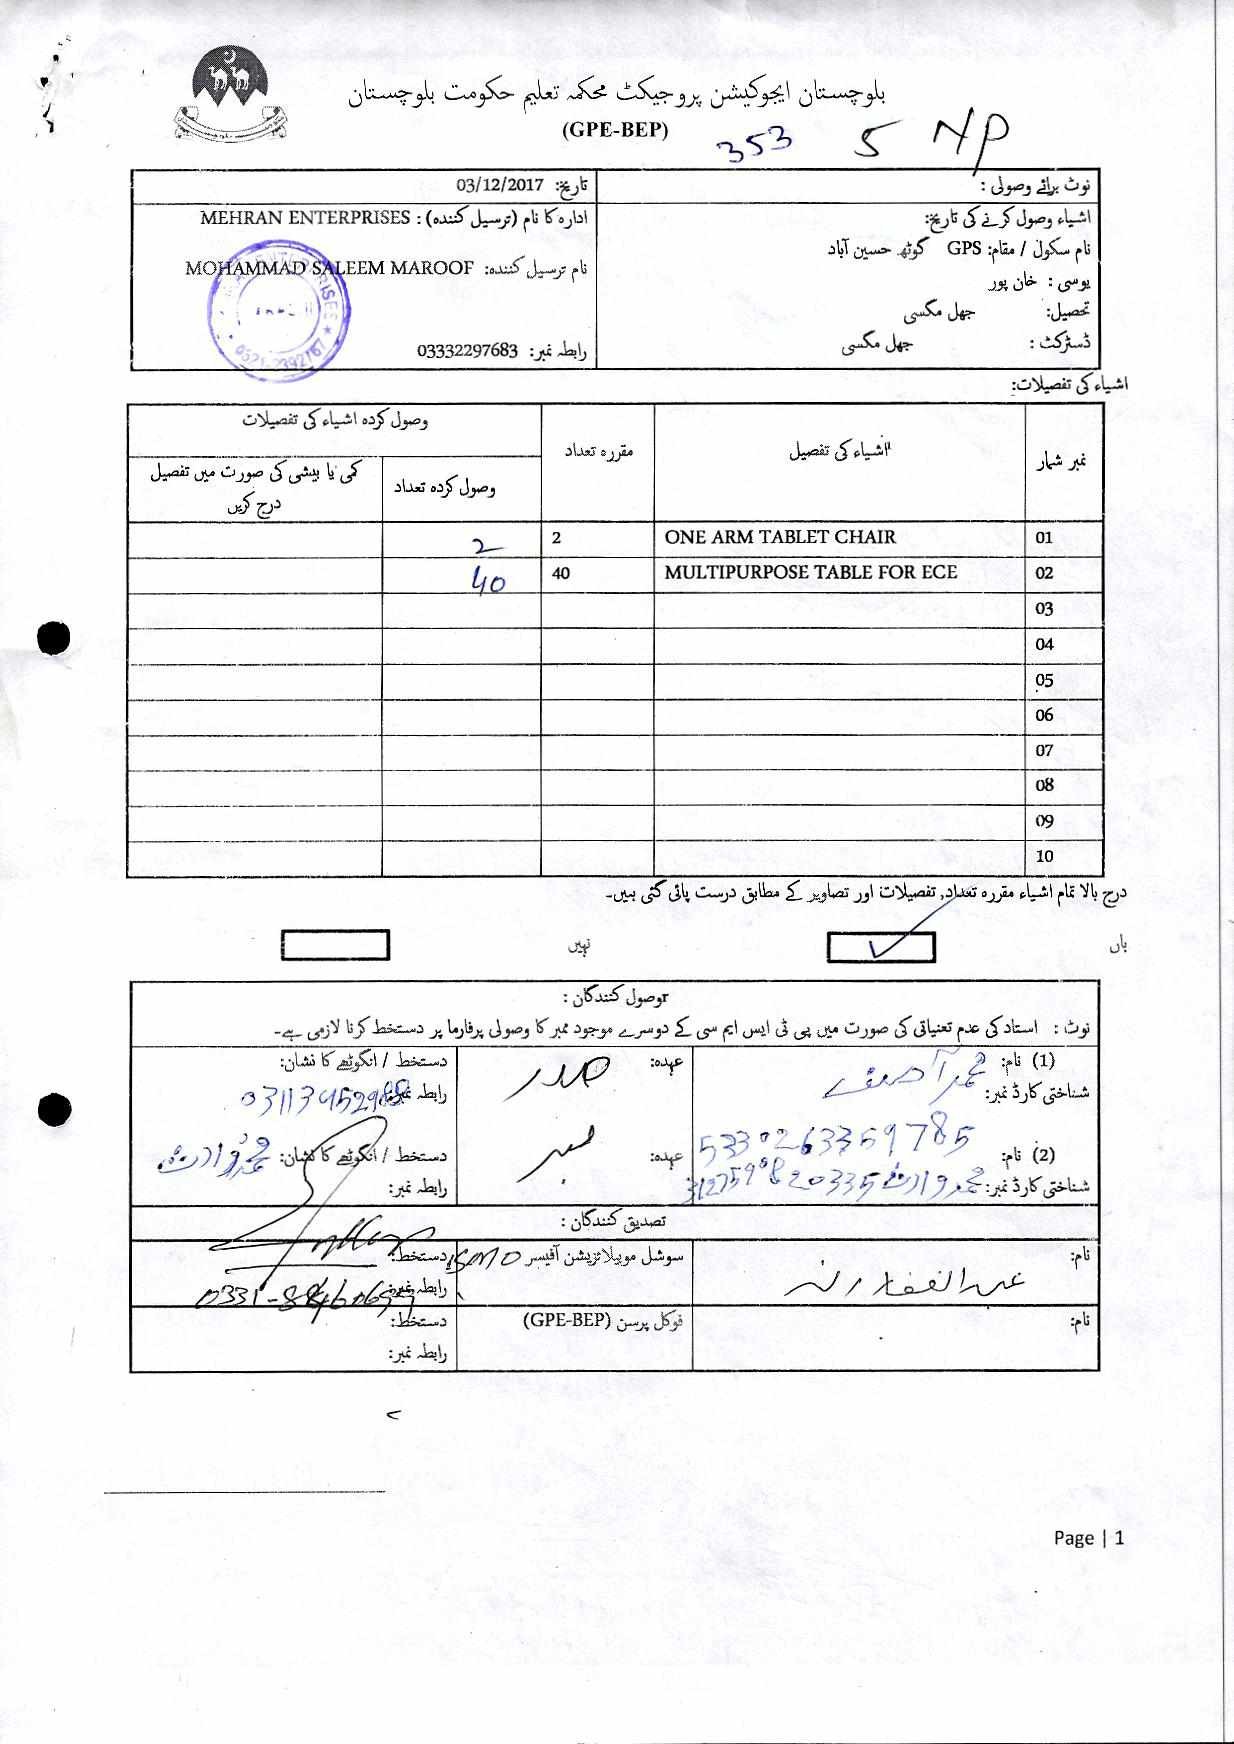 بلوچستان ایجوکیشن پروجیکٹ محکمہ تعلیم حکومت بلوچستان
(GPE-BEP)
353 5 NP
نوٹ برائے وصولی :
تاریخ: 03/12/2017
اشیاء وصول کرنے کی تاریخ:
ادارہ کا نام (ترسیل کنندہ) : MEHRAN ENTERPRISES
نام سکول / مقام: GPS گوٹھ حسین آباد
نام ترسیل کنندہ: MOHAMMAD SALEEM MAROOF
یوسی : خان پور
تحصیل: جھل مگسی
ڈسٹرکٹ : جھل مگسی
رابطہ نمبر: 03332297683
اشیاء کی تفصیلات:
نمبر شمار اشیاء کی تفصیل مقررہ تعداد وصول کردہ اشیاء کی تفصیلات
وصول کردہ تعداد کمی یا بیشی کی صورت میں تفصیل درج کریں
01 ONE ARM TABLET CHAIR 2 2
02 MULTIPURPOSE TABLE FOR ECE 40 40
03
04
05
06
07
08
09
10
درج بالا تمام اشیاء مقررہ تعداد, تفصیلات اور تصاویر کے مطابق درست پائی گئی ہیں۔
ہاں نہیں
وصول کنندگان :
نوٹ : استاد کی عدم تعنیاتی کی صورت میں پی ٹی ایس ایم سی کے دوسرے موجود ممبر کا وصولی پرفارما پر دستخط کرنا لازمی ہے۔
(1) نام: محمد آصف عہدہ: صدر دستخط / انگوٹھے کا نشان:
شناختی کارڈ نمبر: رابطہ نمبر:
5330263359785
(2) نام: عہدہ: ممبر دستخط / انگوٹھے کا نشان: محمد وارث
شناختی کارڈ نمبر: محمد وارث رابطہ نمبر:
تصدیق کنندگان :
نام: سوشل موبیلائزیشن آفیسر دستخط:
رابطہ نمبر:
نام: فوکل پرسن (GPE-BEP) دستخط:
رابطہ نمبر:
Page | 1